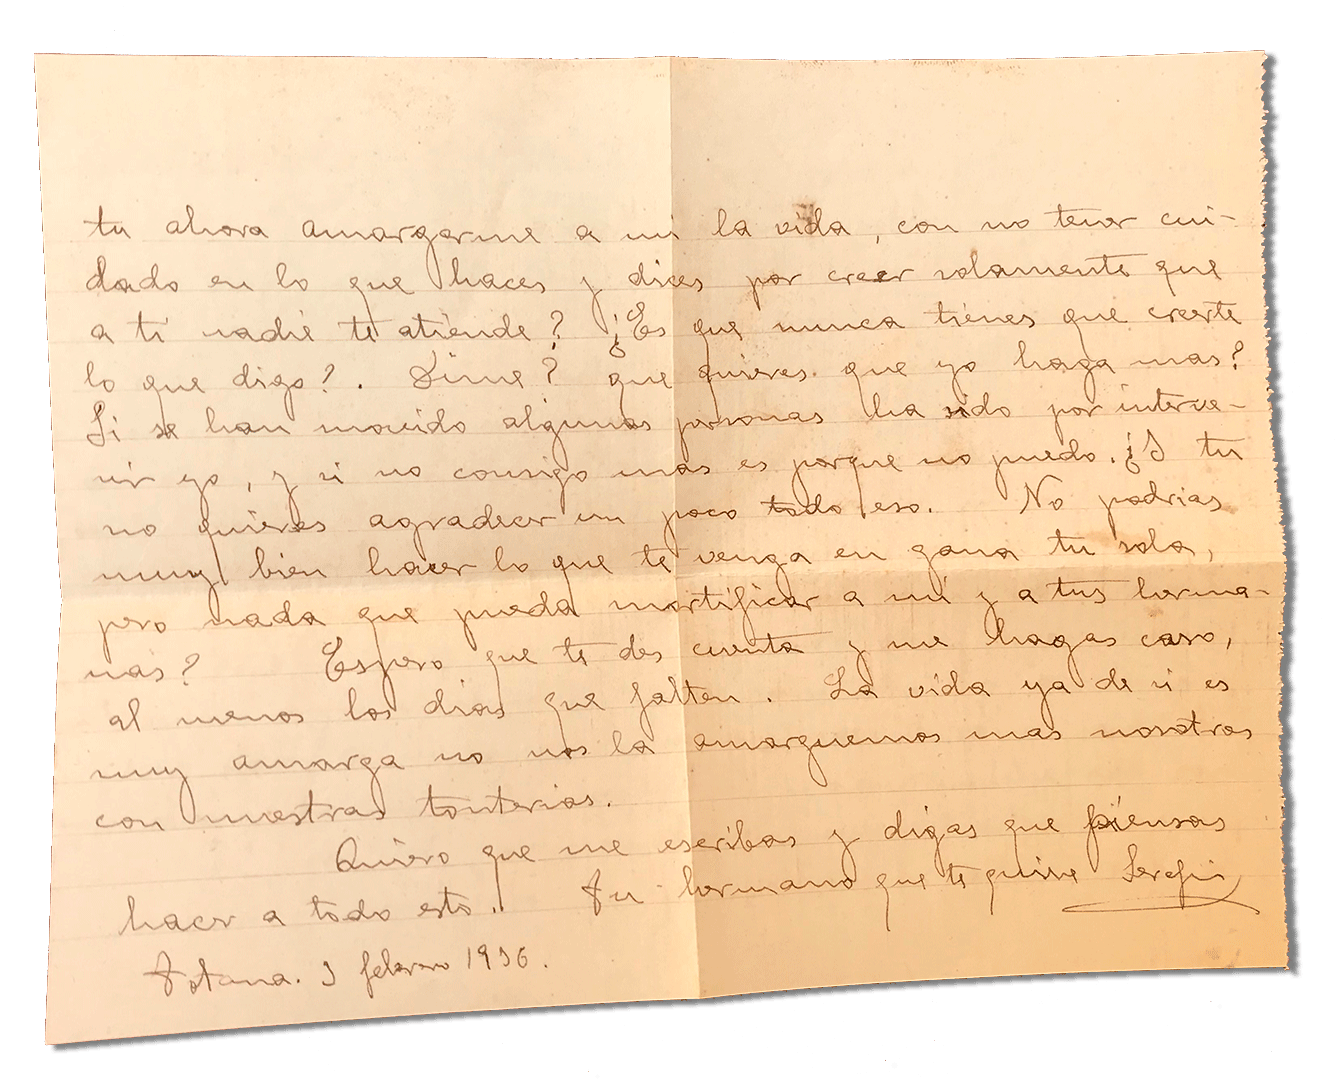 tu ahora amargarme a mi la vida, con no tener cui-
dado en lo que haces y dices por creer solamente que
a ti nadie te atiende? ¿Es que nunca tienes que creerte
lo que digo?. Dime? que quieres que yo haga mas?
Si se han movido algunas personas ha sido por interve-
nir yo, y si no consigo mas es porque no puedo. ¿I tu
no quieres agradecer un poco todo eso. No podrias
muy bien hacer lo que te venga en gana tu sola,
pero nada que pueda mortificar a mi y a tus herma-
nas? Espero que te des cuenta y me hagas caso,
al menos los dias que falten. La vida ya de si es
muy amarga no nos la amarguemos mas nosotros
con nuestras tonterias.
Quiero que me escribas y digas que piensas
hacer a todo esto.. Tu hermano que te quiere Serafin
Totana. 3 febrero 1936.